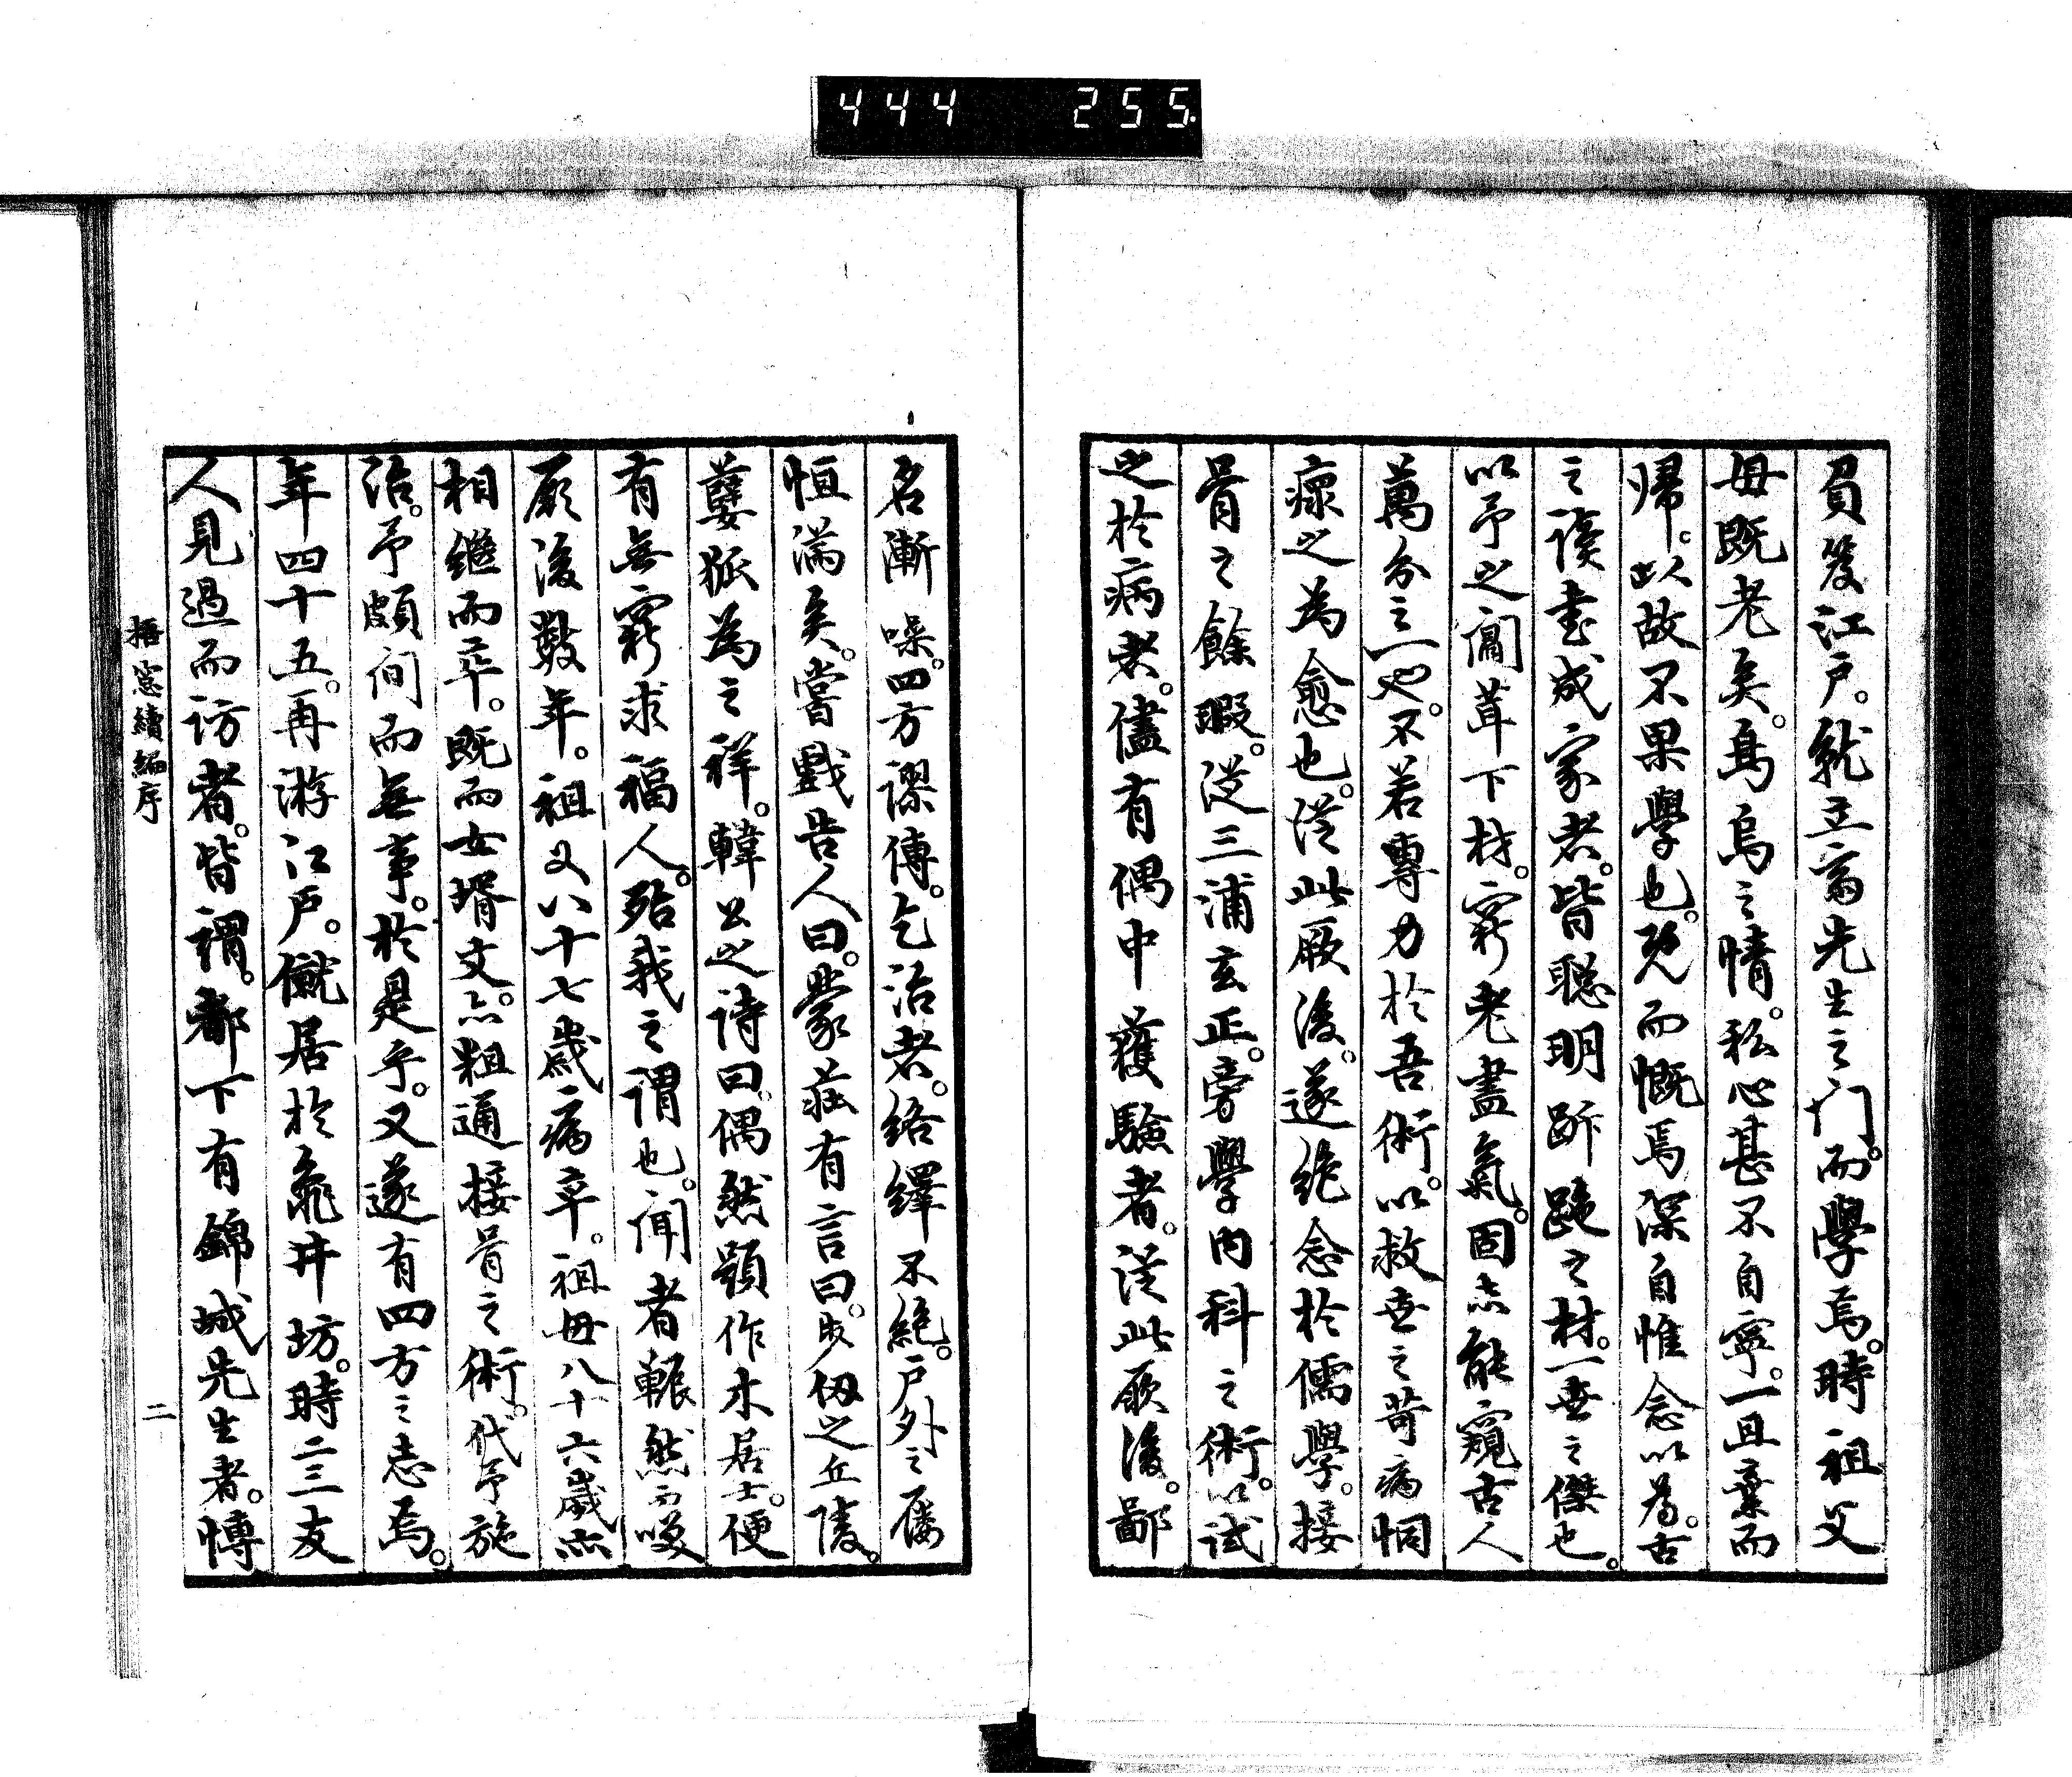 444 255.
負笈江戸。就立齋先生之門。而學焉。時祖父
母既老矣。烏鳥之情。私心甚不自寧。一旦棄而
帰。以故不果學也。既而慨焉深自惟念以為。古
之讀書成家者。皆聰明跅跪之材。一世之傑也。
以予之闒茸下材。窮老盡氣。固亦能窺古人
萬分之一也。不若專力於吾術。以救世之苛病恫
瘝之為愈也。從此厥後。遂絶念於儒學。接
骨之餘暇。從三浦玄正。旁學内科之術。以試
之於病者。儘有偶中獲驗者。從此厥後。鄙
名漸噪。四方謬傳。乞治者。絡繹不絶。戸外之屨
恒滿矣。嘗戲告人曰。蒙莊有言曰。步仭之丘陵。
孽狐為之祥。韓公之詩曰。偶然題作木居士。便
有無窮求福人。殆我之謂也。聞者冁然而咲
厥後數年。祖父八十七歳病卒。祖母八十六歳亦
相繼而卒。既而女壻文亦。粗通接骨之術。代予施
治。予頗间而無事。於是乎。又遂有四方之志焉。
年四十五。再游江戸。僦居於龜井坊。時二三友
人見過而訪者。皆謂。都下有錦城先生者。博
梧窓續編序
二